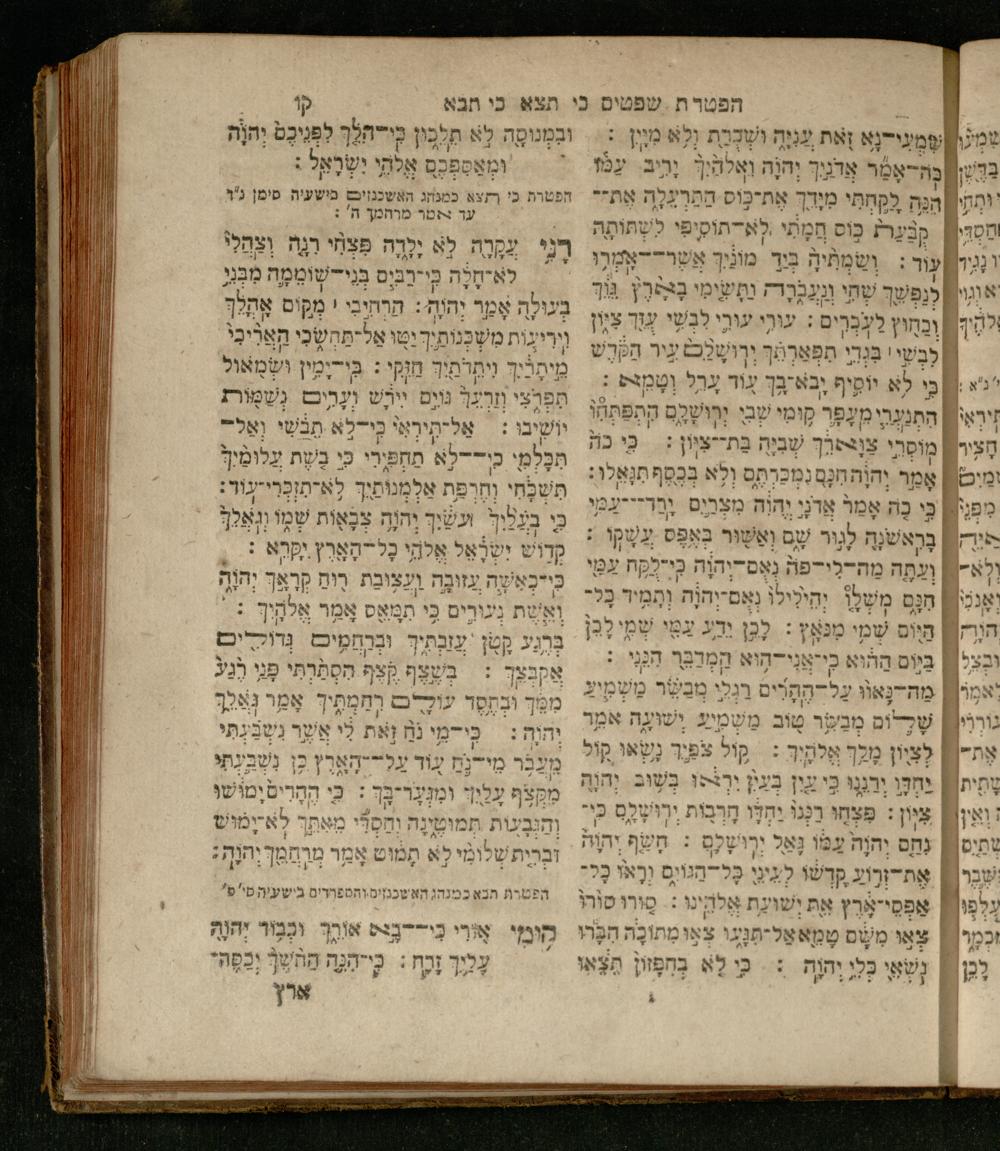 הפטרת שפטים כי תצא כי תבא
קו
שִׁמְעִי־נָא זֹאת עֲנִיָּה וּשְׁכֻרַת וְלֹא מִיָּיִן׃
כֹּה־אָמַר אֲדֹנַיִךְ יְהוָה וֵאלֹהַיִךְ יָרִיב עַמּוֹ
הִנֵּה לָקַחְתִּי מִיָּדֵךְ אֶת־כּוֹס הַתַּרְעֵלָה אֶת־
קֻבַּעַת כּוֹס חֲמָתִי לֹא־תוֹסִיפִי לִשְׁתּוֹתָהּ
עוֹד׃ וְשַׂמְתִּיהָ בְּיַד מוֹגַיִךְ אֲשֶׁר־אָמְרוּ
לְנַפְשֵׁךְ שְׁחִי וְנַעֲבֹרָה וַתָּשִׂימִי כָאָרֶץ גֵּוֵךְ
וְכַחוּץ לַעֹבְרִים׃ עוּרִי עוּרִי לִבְשִׁי עֻזֵּךְ צִיּוֹן
לִבְשִׁי בִּגְדֵי תִפְאַרְתֵּךְ יְרוּשָׁלִַם עִיר הַקֹּדֶשׁ
כִּי לֹא יוֹסִיף יָבֹא־בָךְ עוֹד עָרֵל וְטָמֵא׃
הִתְנַעֲרִי מֵעָפָר קוּמִי שְׁבִי יְרוּשָׁלִָם הִתְפַּתְּחִוּ
מוֹסְרֵי צַוָּארֵךְ שְׁבִיָּה בַּת־צִיּוֹן׃ כִּי כֹה
אָמַר יְהוָה חִנָּם נִמְכַּרְתֶּם וְלֹא בְכֶסֶף תִּגָּאֵלוּ׃
כִּי כֹה אָמַר אֲדֹנָי יֱהוִה מִצְרַיִם יָרַד־עַמִּי
בָרִאשֹׁנָה לָגוּר שָׁם וְאַשּׁוּר בְּאֶפֶס עֲשָׁקוֹ׃
וְעַתָּה מַה־לִּי־פֹה נְאֻם־יְהוָה כִּי־לֻקַּח עַמִּי
חִנָּם מֹשְׁלָו יְהֵילִילוּ נְאֻם־יְהוָה וְתָמִיד כָּל־
הַיּוֹם שְׁמִי מִנֹּאָץ׃ לָכֵן יֵדַע עַמִּי שְׁמִי לָכֵן
בַּיּוֹם הַהוּא כִּי־אֲנִי־הוּא הַמְדַבֵּר הִנֵּנִי׃
מַה־נָּאווּ עַל־הֶהָרִים רַגְלֵי מְבַשֵּׂר מַשְׁמִיעַ
שָׁלוֹם מְבַשֵּׂר טוֹב מַשְׁמִיעַ יְשׁוּעָה אֹמֵר
לְצִיּוֹן מָלַךְ אֱלֹהָיִךְ׃ קוֹל צֹפַיִךְ נָשְׂאוּ קוֹל
יַחְדָּו יְרַנֵּנוּ כִּי עַיִן בְּעַיִן יִרְאוּ בְּשׁוּב יְהוָה
צִיּוֹן׃ פִּצְחוּ רַנְּנוּ יַחְדָּו חָרְבוֹת יְרוּשָׁלִָם כִּי־
נִחַם יְהוָה עַמּוֹ גָּאַל יְרוּשָׁלִָם׃ חָשַׂף יְהוָה
אֶת־זְרוֹעַ קָדְשׁוֹ לְעֵינֵי כָּל־הַגּוֹיִם וְרָאוּ כָּל־
אַפְסֵי־אָרֶץ אֵת יְשׁוּעַת אֱלֹהֵינוּ׃ סוּרוּ סוּרוּ
צְאוּ מִשָּׁם טָמֵא אַל־תִּגָּעוּ צְאוּ מִתּוֹכָהּ הִבָּרוּ
נֹשְׂאֵי כְּלֵי יְהוָה׃ כִּי לֹא בְחִפָּזוֹן תֵּצֵאוּ
וּבִמְנוּסָה לֹא תֵלֵכוּן כִּי־הֹלֵךְ לִפְנֵיכֶם יְהוָה
וּמְאַסִּפְכֶם אֱלֹהֵי יִשְׂרָאֵל׃
הפטרת כי תצא כמנהג האשכנזים בישעיה סימן נ״ד
עד אמר מרחמך ה׳׃
רָנִּי עֲקָרָה לֹא יָלָדָה פִּצְחִי רִנָּה וְצַהֲלִי
לֹא־חָלָה כִּי־רַבִּים בְּנֵי־שׁוֹמֵמָה מִבְּנֵי
בְעוּלָה אָמַר יְהוָה׃ הַרְחִיבִי מְקוֹם אָהֳלֵךְ
וִירִיעוֹת מִשְׁכְּנוֹתַיִךְ יַטּוּ אַל־תַּחְשֹׂכִי הַאֲרִיכִי
מֵיתָרַיִךְ וִיתֵדֹתַיִךְ חַזֵּקִי׃ כִּי־יָמִין וּשְׂמֹאול
תִּפְרֹצִי וְזַרְעֵךְ גּוֹיִם יִירָשׁ וְעָרִים נְשַׁמּוֹת
יוֹשִׁיבוּ׃ אַל־תִּירְאִי כִּי־לֹא תֵבֹשִׁי וְאַל־
תִּכָּלְמִי כִּי־לֹא תַחְפִּירִי כִּי בֹשֶׁת עֲלוּמַיִךְ
תִּשְׁכָּחִי וְחֶרְפַּת אַלְמְנוּתַיִךְ לֹא־תִזְכְּרִי־עוֹד׃
כִּי בֹעֲלַיִךְ עֹשַׂיִךְ יְהוָה צְבָאוֹת שְׁמוֹ וְגֹאֲלֵךְ
קְדוֹשׁ יִשְׂרָאֵל אֱלֹהֵי כָל־הָאָרֶץ יִקָּרֵא׃
כִּי־כְאִשָּׁה עֲזוּבָה וַעֲצוּבַת רוּחַ קְרָאָךְ יְהוָה
וְאֵשֶׁת נְעוּרִים כִּי תִמָּאֵס אָמַר אֱלֹהָיִךְ׃
בְּרֶגַע קָטֹן עֲזַבְתִּיךְ וּבְרַחֲמִים גְּדוֹלִים
אֲקַבְּצֵךְ׃ בְּשֶׁצֶף קֶצֶף הִסְתַּרְתִּי פָנַי רֶגַע
מִמֵּךְ וּבְחֶסֶד עוֹלָם רִחַמְתִּיךְ אָמַר גֹּאֲלֵךְ
יְהוָה׃ כִּי־מֵי נֹחַ זֹאת לִי אֲשֶׁר נִשְׁבַּעְתִּי
מֵעֲבֹר מֵי־נֹחַ עוֹד עַל־הָאָרֶץ כֵּן נִשְׁבַּעְתִּי
מִקְּצֹף עָלַיִךְ וּמִגְּעָר־בָּךְ׃ כִּי הֶהָרִים יָמוּשׁוּ
וְהַגְּבָעוֹת תְּמוּטֶינָה וְחַסְדִּי מֵאִתֵּךְ לֹא־יָמוּשׁ
וּבְרִית שְׁלוֹמִי לֹא תָמוּט אָמַר מְרַחֲמֵךְ יְהוָה׃
הפטרת תבא כמנהג האשכנזים והספרדים בישעיה סי׳ ס׳
קוּמִי אוֹרִי כִּי־בָא אוֹרֵךְ וּכְבוֹד יְהוָה
עָלַיִךְ זָרָח׃ כִּי־הִנֵּה הַחֹשֶׁךְ יְכַסֶּה־
ארץ